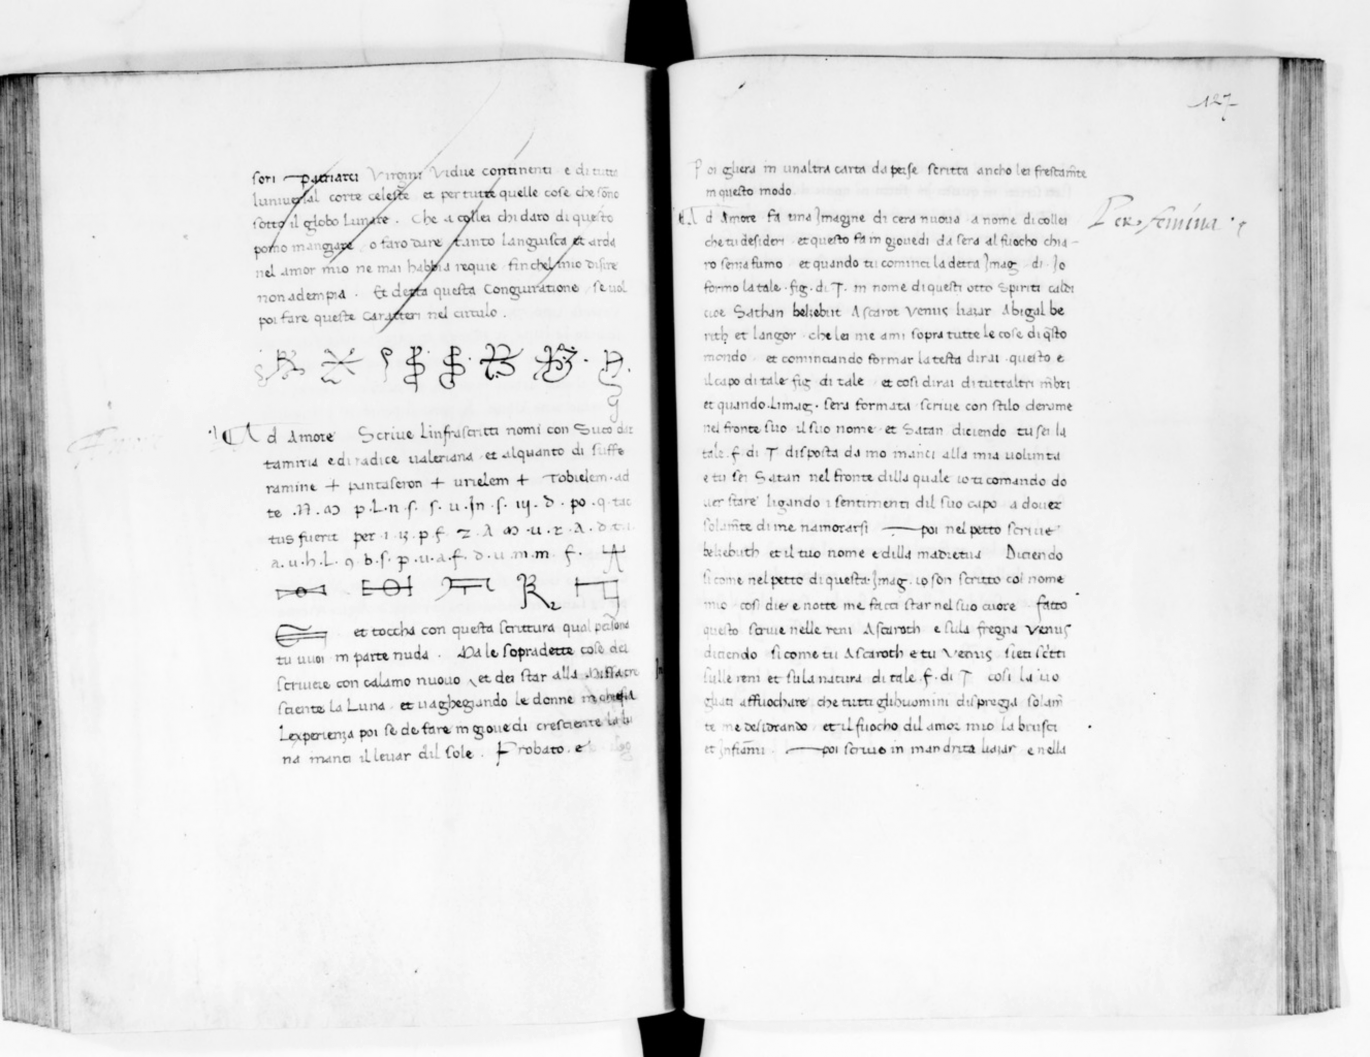 sori patriarci Virgini Vidue continenti e di tutte
luniuersal corte celeste et per tutte quelle cose che sōno
sotto il globo Lunare . Che a collei chi daro di questo
pomo mangiare o faro dare tanto languisca et arda
nel amor mio ne mai habbia requie finchel mio disire
non adempia . Et detta questa Congiuratione se uol
poi fare queste Caratteri nel circulo .
Ad Amore Scriue Linfrascritti nomi con Suco
et alquanto di
ramine + pantaseron + urielem + Tobielem ad
te . N . p . L . n . s . u . Jn . s . iij . d . po . q . tac
tus fuerit per
a . u . h . L . 9 . b . s . p . u . a . f . d . u . m . m . f .
et toccha con questa scrittura qual persona
tu uuoi in parte nuda . Da le sopradette cose dei
scriuere con calamo nuouo et dei star alla
sciente la Luna et uaghegiando le donne
Lexperienza poi se de fare in giouedi cresciente la lu
na manci il leuar dil sole . Probato . e
127
Poi gliera in unaltra carta da perse scritta ancho lei
in questo modo
Ad Amore fa una Jmagine di cera nuoua a nome di collei
Per femina
che tu desideri et questo fa in giouedi da sera al fuocho chia-
ro senza fumo et quando tu cominci la detta Jmag . di . Jo
formo la tale . fig . di . T . in nome di questi otto Spiriti caldi
cioe Sathan belzebut Ascarot Venus liaiar Abigal be
rith et langor che lei me ami sopra tutte le cose di q̄sto
mondo et cominciando formar la testa dirai questo e
il capo di tale fig di tale et cosi dirai di tuttaltri mbri
et quando Limag . sera formata scriue con stilo derame
nel fronte suo il suo nome et Satan diciendo tu sei la
tale . f . di T disposta da mo manci alla mia uolunta
e tu sei Satan nel fronte dilla quale io ti comando do
uer stare ligando i sentimenti dil suo capo a douer
solam̄te di me namorarsi poi nel petto scriue
belzebuth et il tuo nome e dilla madre tua Diciendo
si come nel petto di questa Jmag . io son scritto col nome
mio cosi die e notte me facci star nel suo cuore fatto
questo scriue nelle reni Ascaroth e sula fregna Venus
diciendo si come tu Ascaroth e tu Venus sieti sc̄tti
sulle reni et sula natura di tale . f . di T cosi la uo
gliati affuochare che tutti glihuomini dispregia solam̄
te me desiderando et il fuocho dil amor mio la brusci
et Jnfiami . poi scriue in man drita liaiar e nella